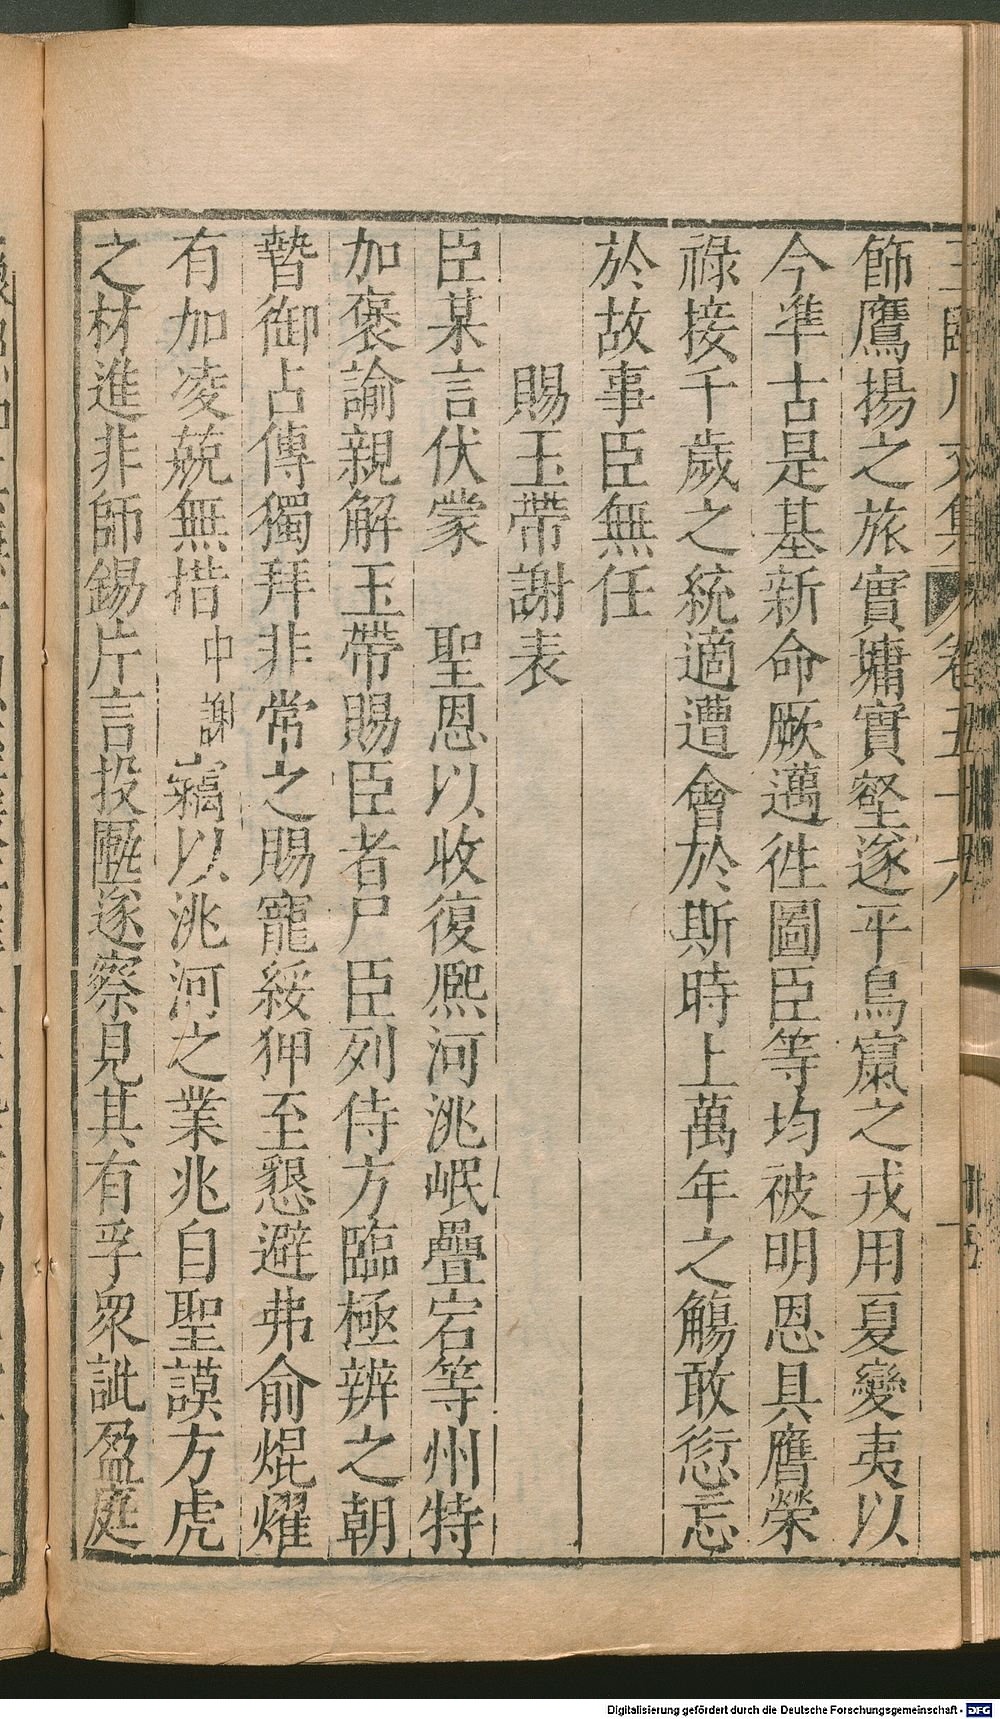 飾鷹揚之旅實墉實壑遂平鳥竄之戎用夏變夷以
今準古是基新命厥邁徃圖臣等均被明恩具膺榮
祿接千歲之統適遭會於斯時上萬年之觴敢愆忘
於故事臣無任
賜玉帶謝表
臣某言伏蒙 聖恩以收復熈河洮岷疊宕等州特
加褒諭親解玉帶賜臣者尸臣列侍方臨極辨之朝
暬御占傳獨拜非常之賜寵綏狎至懇避弗俞焜燿
有加凌兢無措中謝竊以洮河之業兆自聖謨方虎
之材進非師錫片言投匭遂察見其有孚衆訿盈庭
Digitalisierung gefördert durch die Deutsche Forschungsgemeinschaft - DFG